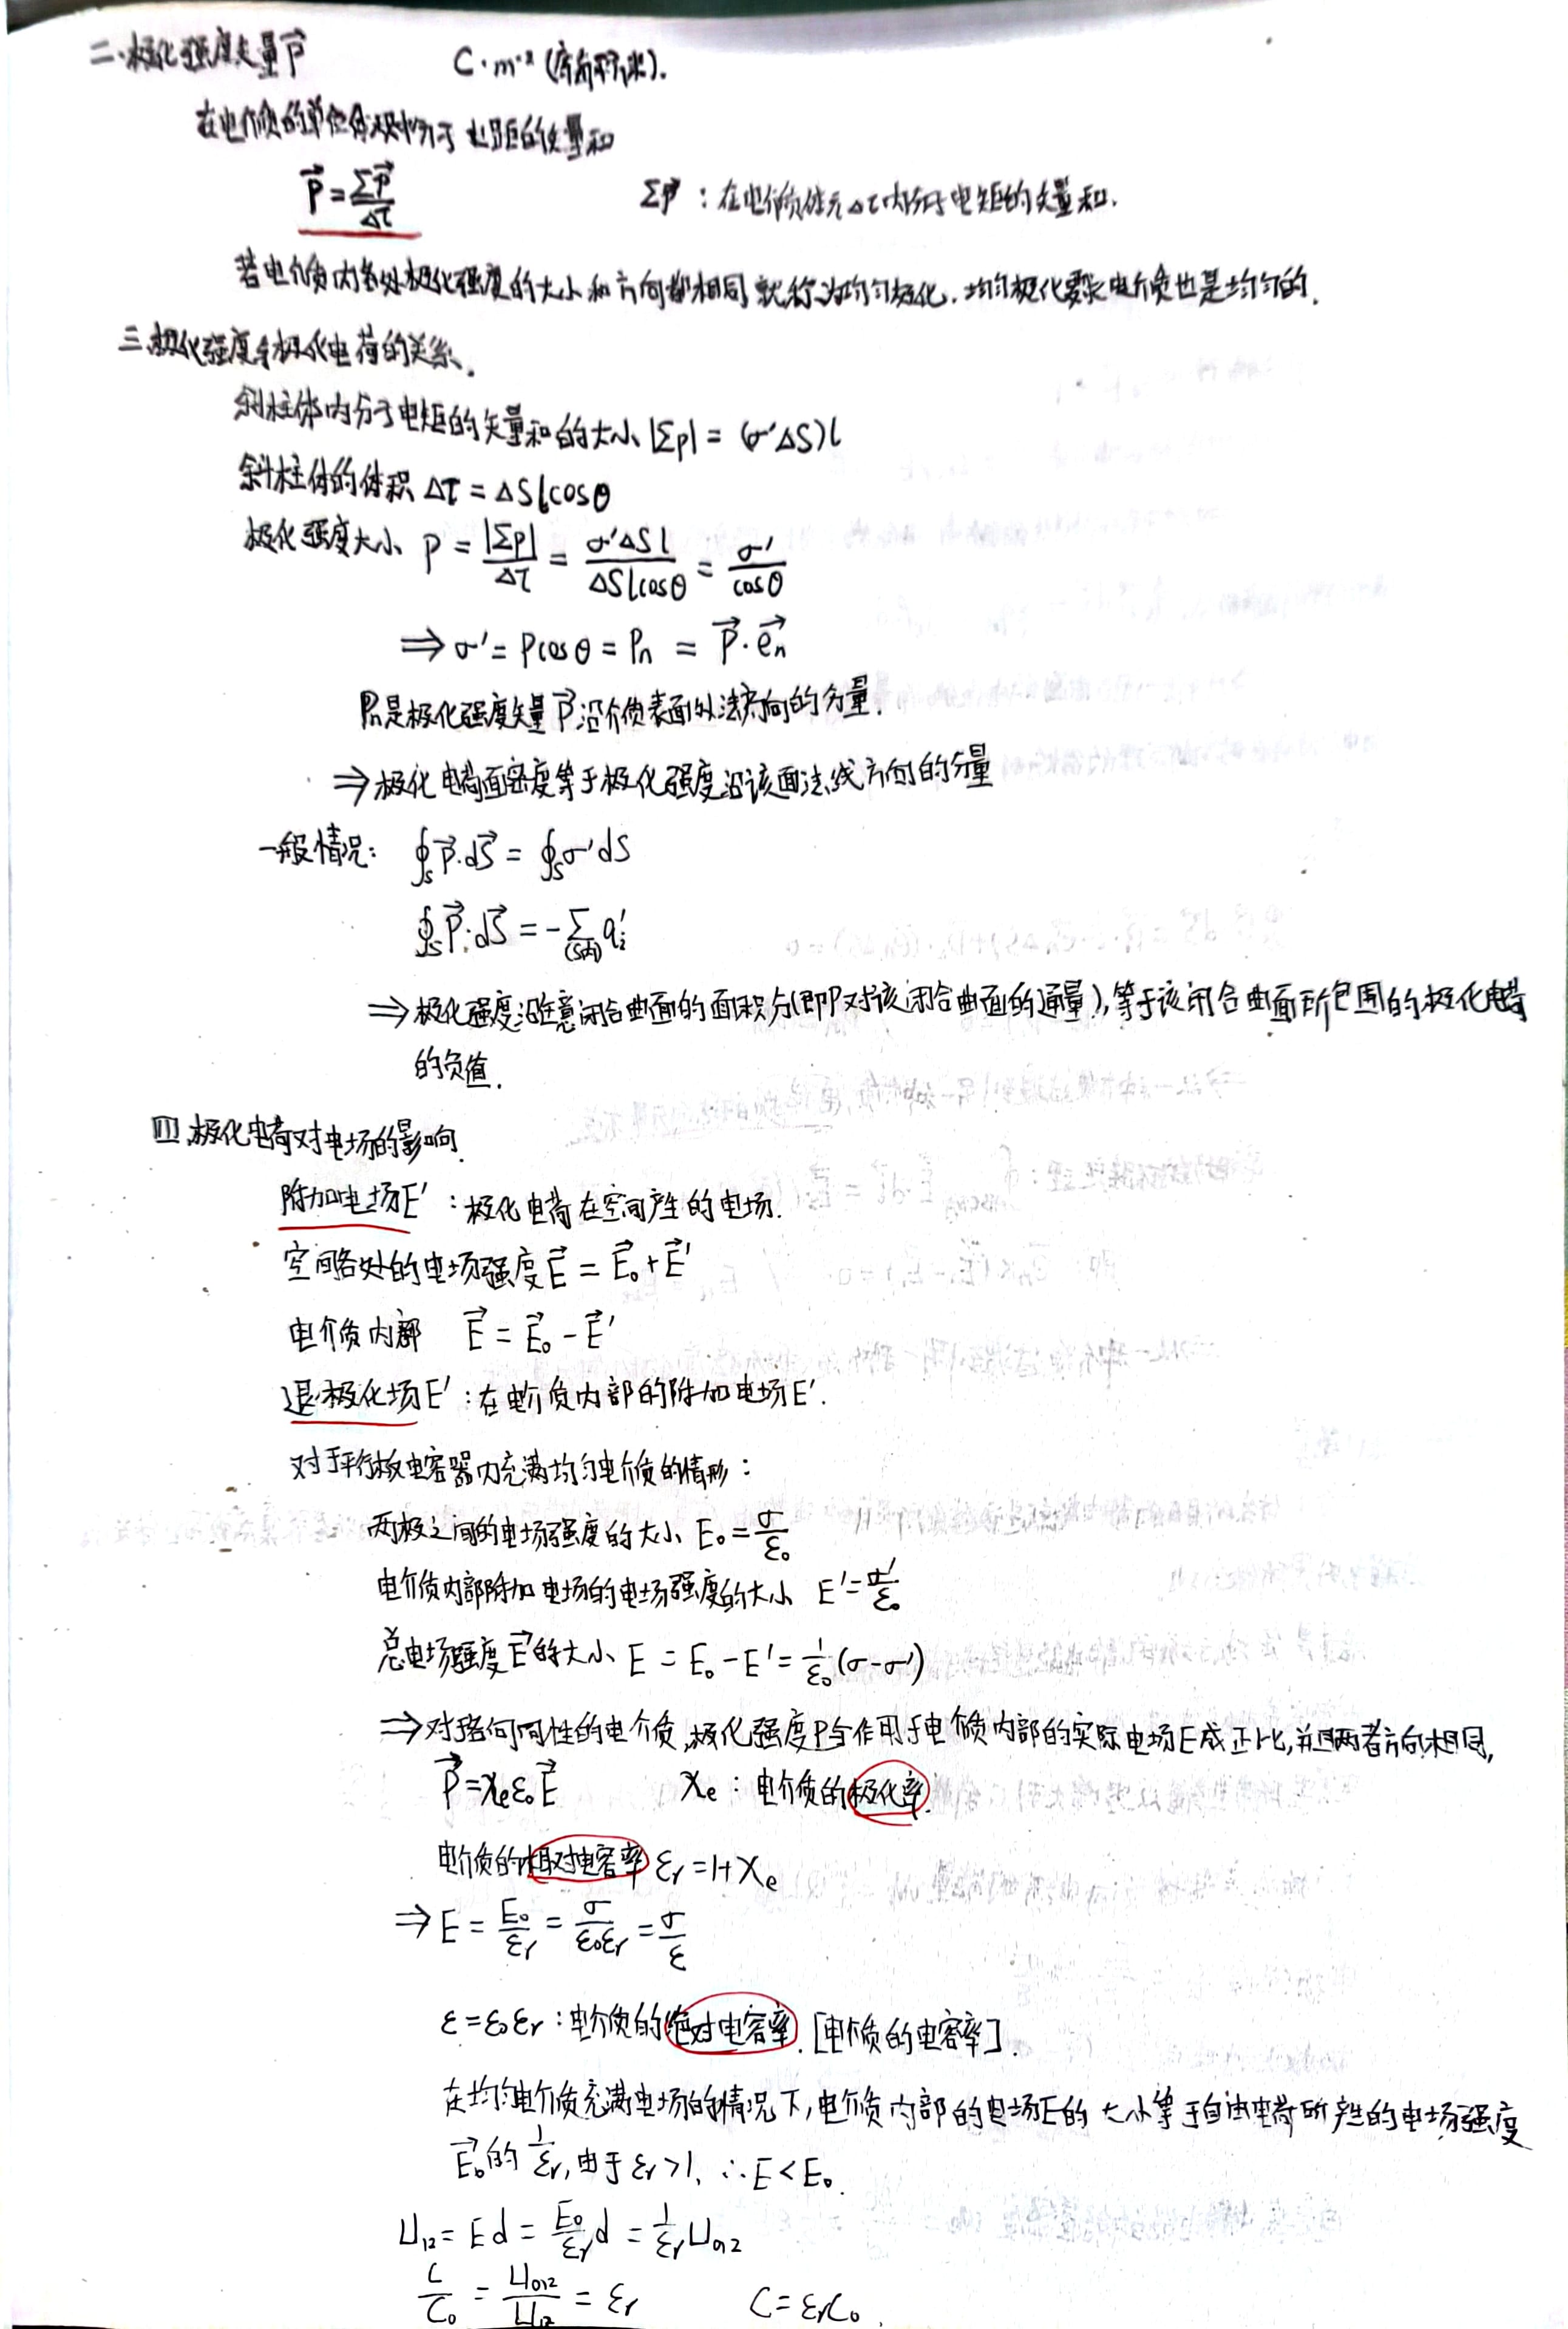 二.极化强度矢量P⃗ C·m⁻² (库每平方米).
在电介质的单位体积中分子电距的矢量和
P⃗ = ΣP⃗/Δτ ΣP⃗ : 在电介质体元Δτ内分子电矩的矢量和.
若电介质内各处极化强度的大小和方向都相同就称为均匀极化.均匀极化要求电介质也是均匀的.
三.极化强度与极化电荷的关系.
斜柱体内分子电矩的矢量和的大小 |Σp| = (σ'ΔS)l
斜柱体的体积 Δτ = ΔSlcosθ
极化强度大小 P = |Σp|/Δτ = σ'ΔSl/ΔSlcosθ = σ'/cosθ
⇒ σ' = Pcosθ = Pn = P⃗·e⃗n
Pn是极化强度矢量P⃗沿介质表面外法方向的分量.
⇒ 极化电荷面密度等于极化强度沿该面法线方向的分量
一般情况: ∮s P⃗·dS⃗ = ∮s σ'dS
∮s P⃗·dS⃗ = -Σ(S内) q'i
⇒ 极化强度沿任意闭合曲面的面积分(即P对该闭合曲面的通量),等于该闭合曲面所包围的极化电荷
的负值.
四.极化电荷对电场的影响.
附加电场E' : 极化电荷在空间产生的电场.
空间各处的电场强度E⃗ = E⃗₀ + E⃗'
电介质内部 E⃗ = E⃗₀ - E⃗'
退极化场E' : 在电介质内部的附加电场E'.
对于平行板电容器内充满均匀电介质的情形 :
两极之间的电场强度的大小 E₀ = σ/ε₀
电介质内部附加电场的电场强度的大小 E' = σ'/ε₀
总电场强度E⃗的大小 E = E₀ - E' = 1/ε₀ (σ-σ')
⇒ 对各向同性的电介质,极化强度P与作用于电介质内部的实际电场E成正比,并且两者方向相同,
P⃗ = χeε₀E⃗ χe : 电介质的极化率.
电介质的相对电容率 εr = 1+χe
⇒ E = E₀/εr = σ/ε₀εr = σ/ε
ε = ε₀εr : 电介质的绝对电容率. [电介质的电容率].
在均匀电介质充满电场的情况下,电介质内部的电场E的大小等于自由电荷所产生的电场强度
E⃗₀的 1/εr, 由于 εr>1, ∴ E<E₀.
U₁₂ = Ed = E₀/εr d = 1/εr U₀₁₂
C/C₀ = U₀₁₂/U₁₂ = εr C = εrC₀.